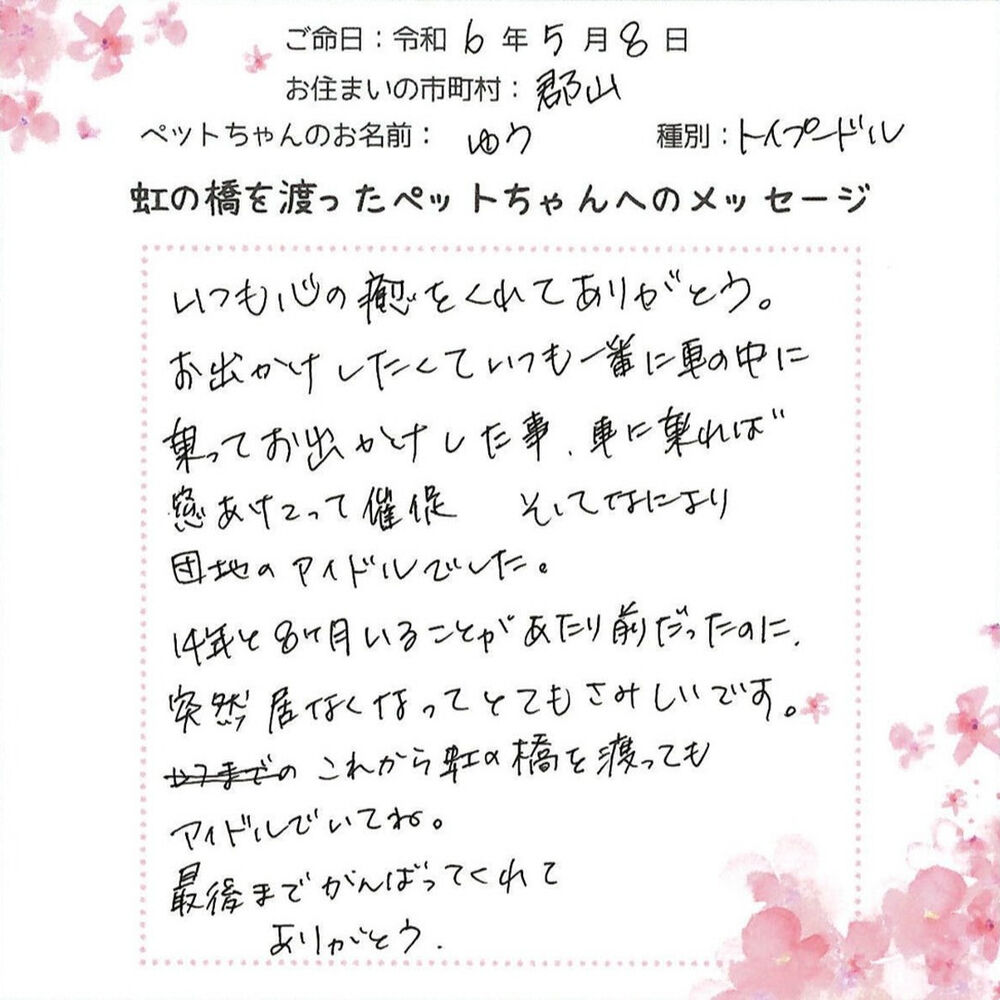 ご命日：令和 6 年 5 月 8 日
お住まいの市町村： 郡山
ペットちゃんのお名前： ゆう 種別：トイプードル
虹の橋を渡ったペットちゃんへのメッセージ
いつも心の癒をくれてありがとう。
お出かけしたくていつも一番に車の中に
乗ってお出かけした事、車に乗れば
窓あけてって催促 そしてなにより
団地のアイドルでした。
14年と8ヶ月いることがあたり前だったのに、
突然居なくなってとてもさみしいです。
これから虹の橋を渡っても
アイドルでいてね。
最後までがんばってくれて
ありがとう.